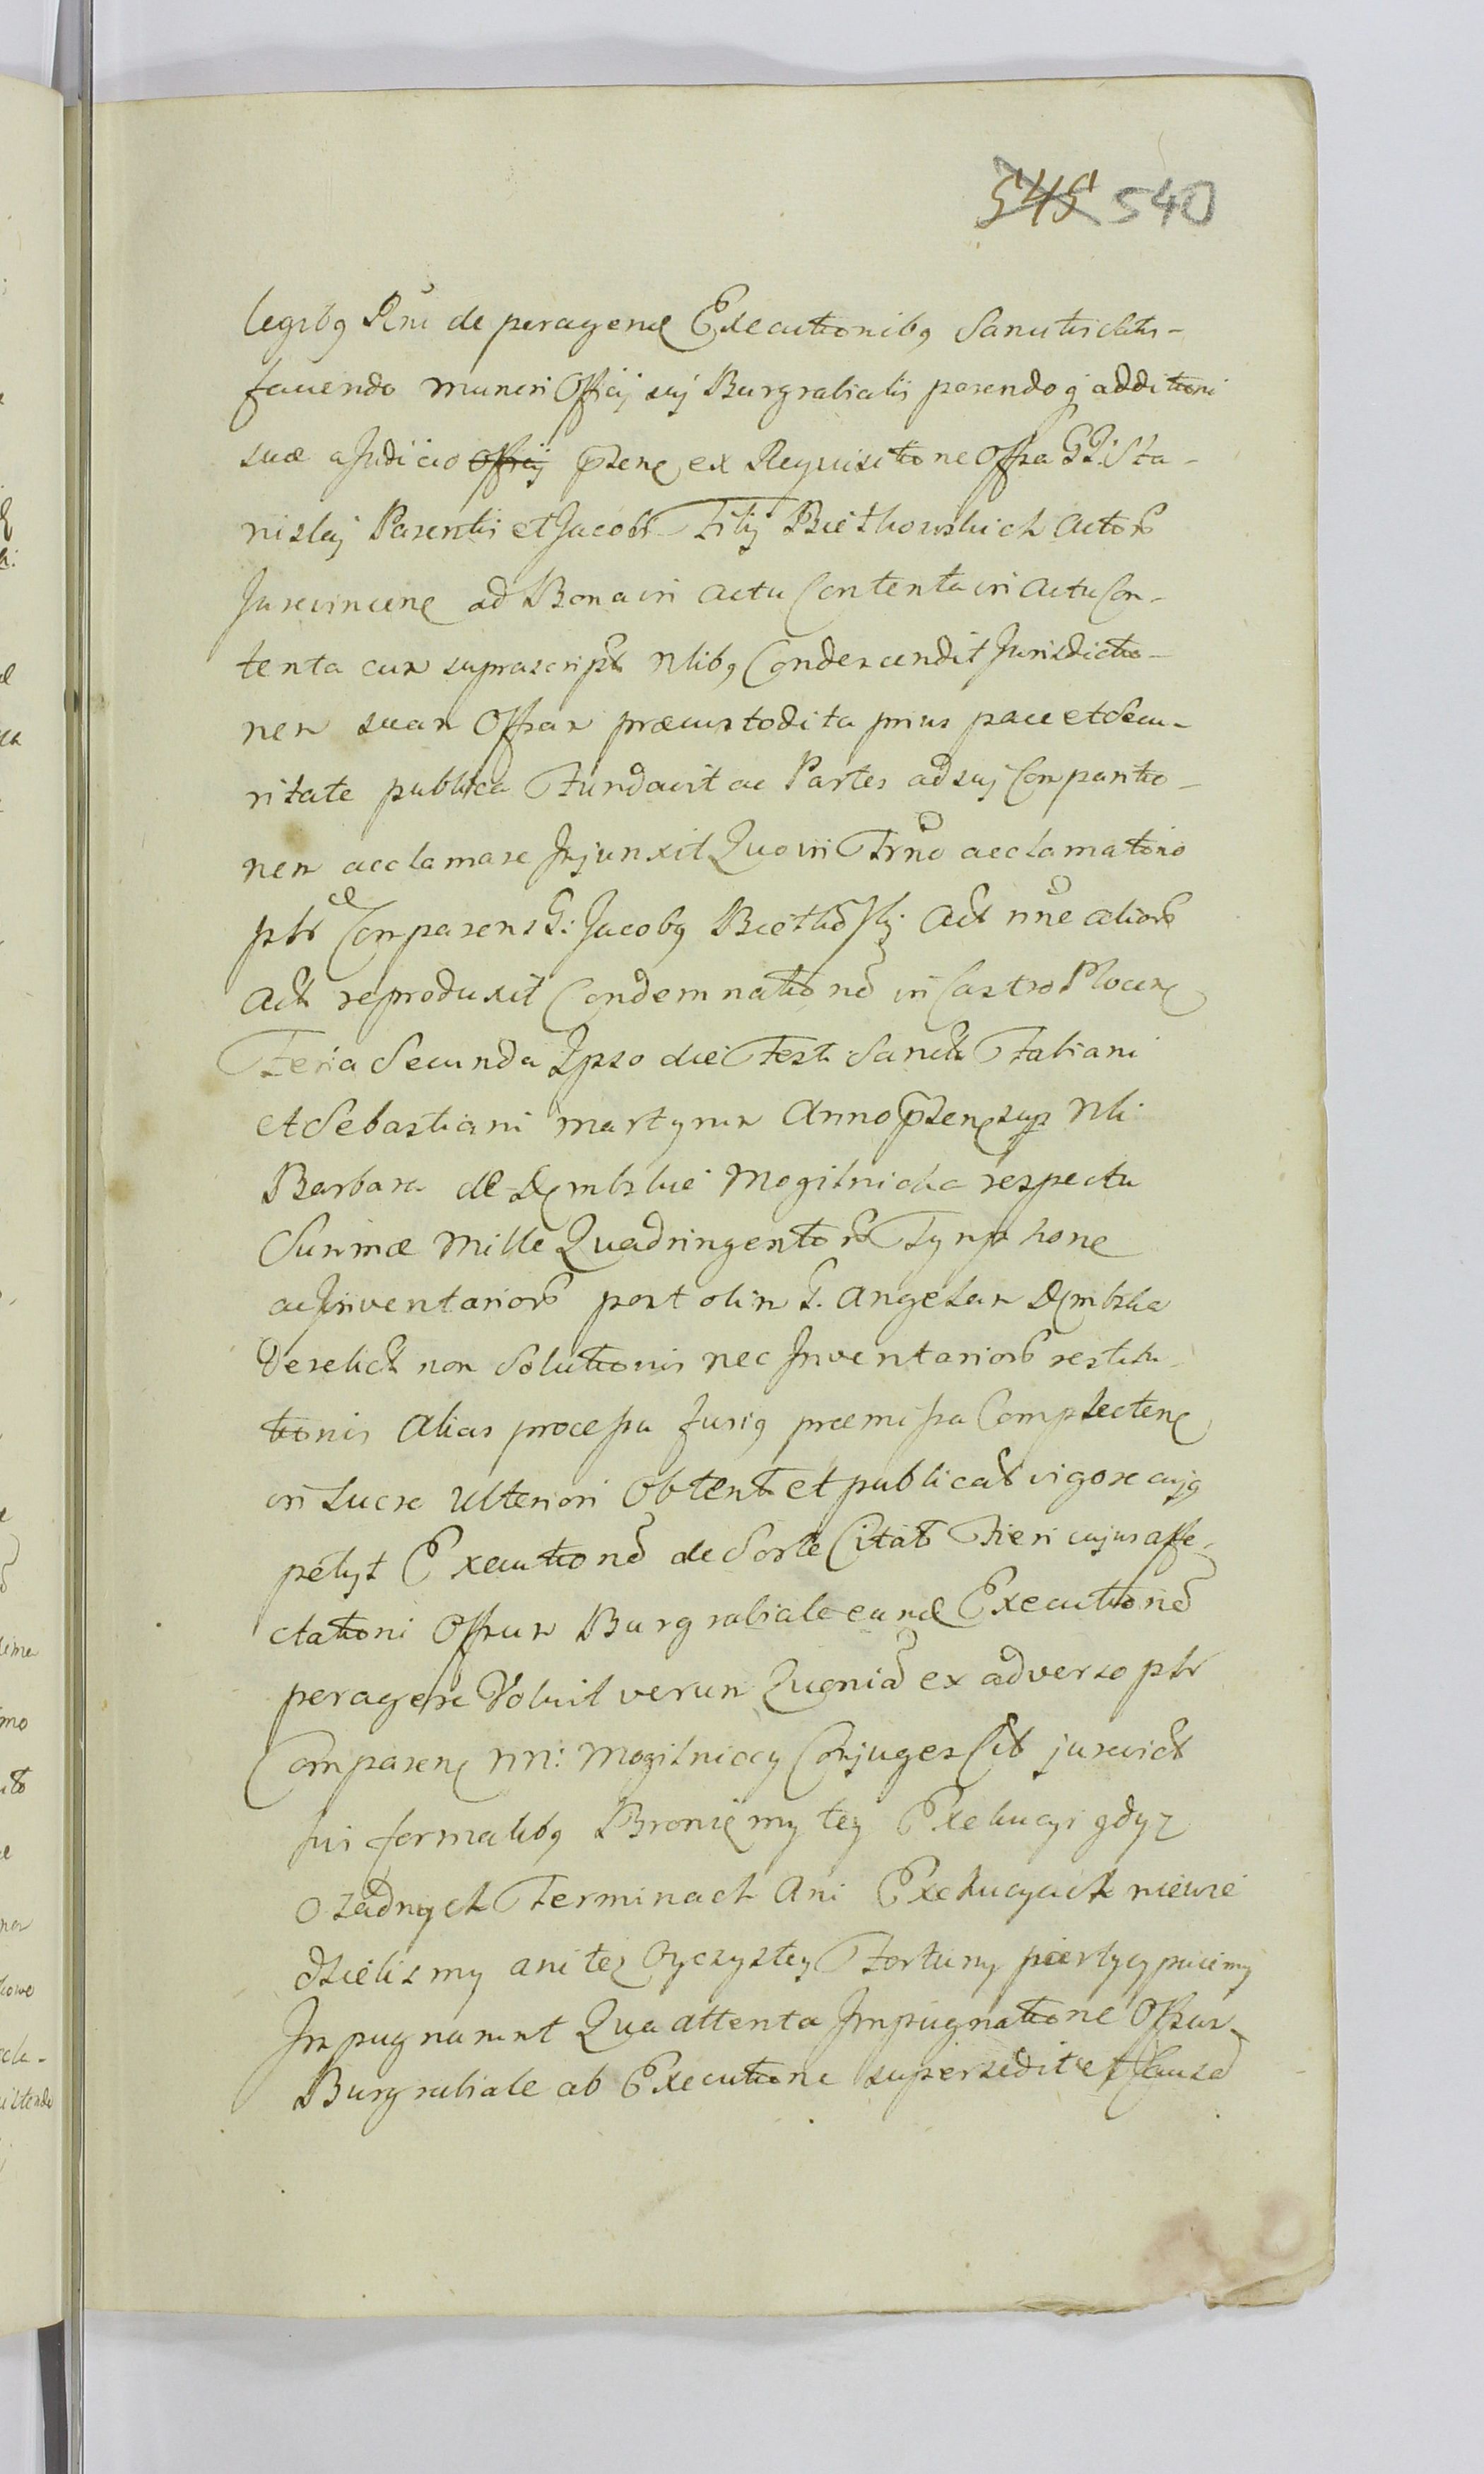 545 540
legibq Rni de peragend Executionibq Sancitis satis-
faciendo muneri Officij sui Burgrabialis parendoq additioni
suæ a Judicio Officij psenę ex Requisitione Offsa GG: Sta-
nislaj Parentis et Jacobi Filij Bietkowskich Actor
Jurevincenę ad Bona in actu Contenta in actu Con-
tenta cum suprascript Nlibq Condescendit Jurisdictio-
nem suam Offsam præcustodita prius pace et Secu-
ritate publica Fundavit ac Partes ad sui Comparitio-
nem acclamare Injunxit Quo in Trno acclamatorio
pltr Comparens G: Jacobq Bietkoski Act nne alior
Act reproduxit Condemnationē in Castro Plocenę
Feria Secunda Ipso die Festi Sancti Fabiani
et Sebastiani martyrum Anno psenę sup Nli
Barbara de Dęmbskie Mogilnicka respectu
Summæ Mille Quadringentor Tymphone
ac Inventarior post olim G. Angelam Dęmbska
derelict non Solutionis nec Inventarior restitu-
tionis alias processu Jurisq præmissa Complectenę
in Lucro Ulteriori Obtent et publicat vigore cujq
petyt Executionē de Sorte Citat Fieri cujus affe-
ctationi Offsum Burgrabiale eand Executionē
peragere Voluit verum Quoniā ex adverso pltr
Comparenę NN: Mogilniccy Conjuges Cit jurevict
his formalibq Bronięmy tey Exekucyi gdyz
o zadnych Terminach Ani Exekucyach niewie
dzielismy ani tez Oyczystey Fortuny partycypuiemy
Impugnarunt Qua attenta Impugnatione Offsum
Burgrabiale ab Executione supersedit et Causā